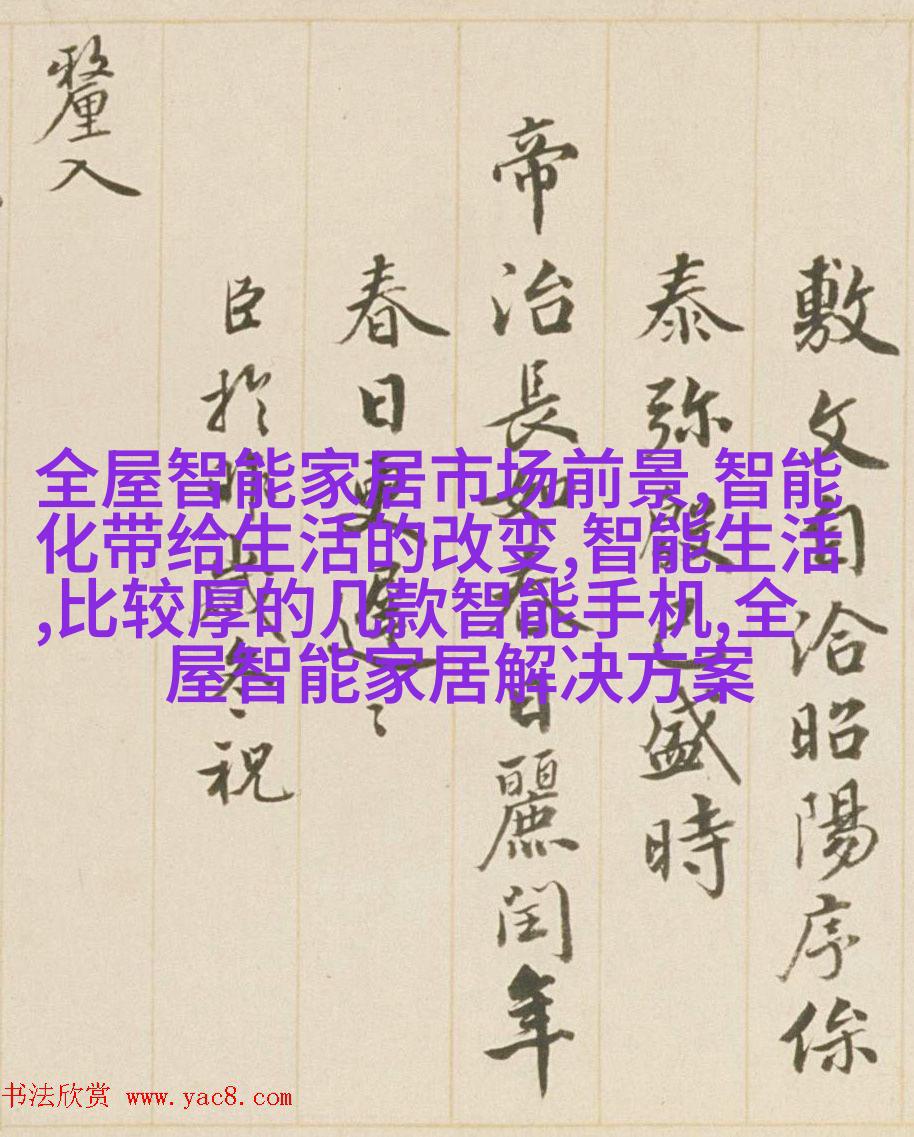 敷文自洽昭陽序
泰弥殷已盛時
帝治長如春日麗閏年
春日更遲
臣於歲祝
釐入
全屋智能家居市场前景,智能
化带给生活的改变,智能生活
,比较厚的几款智能手机,全
屋智能家居解决方案
书法欣赏 www.yac8.com